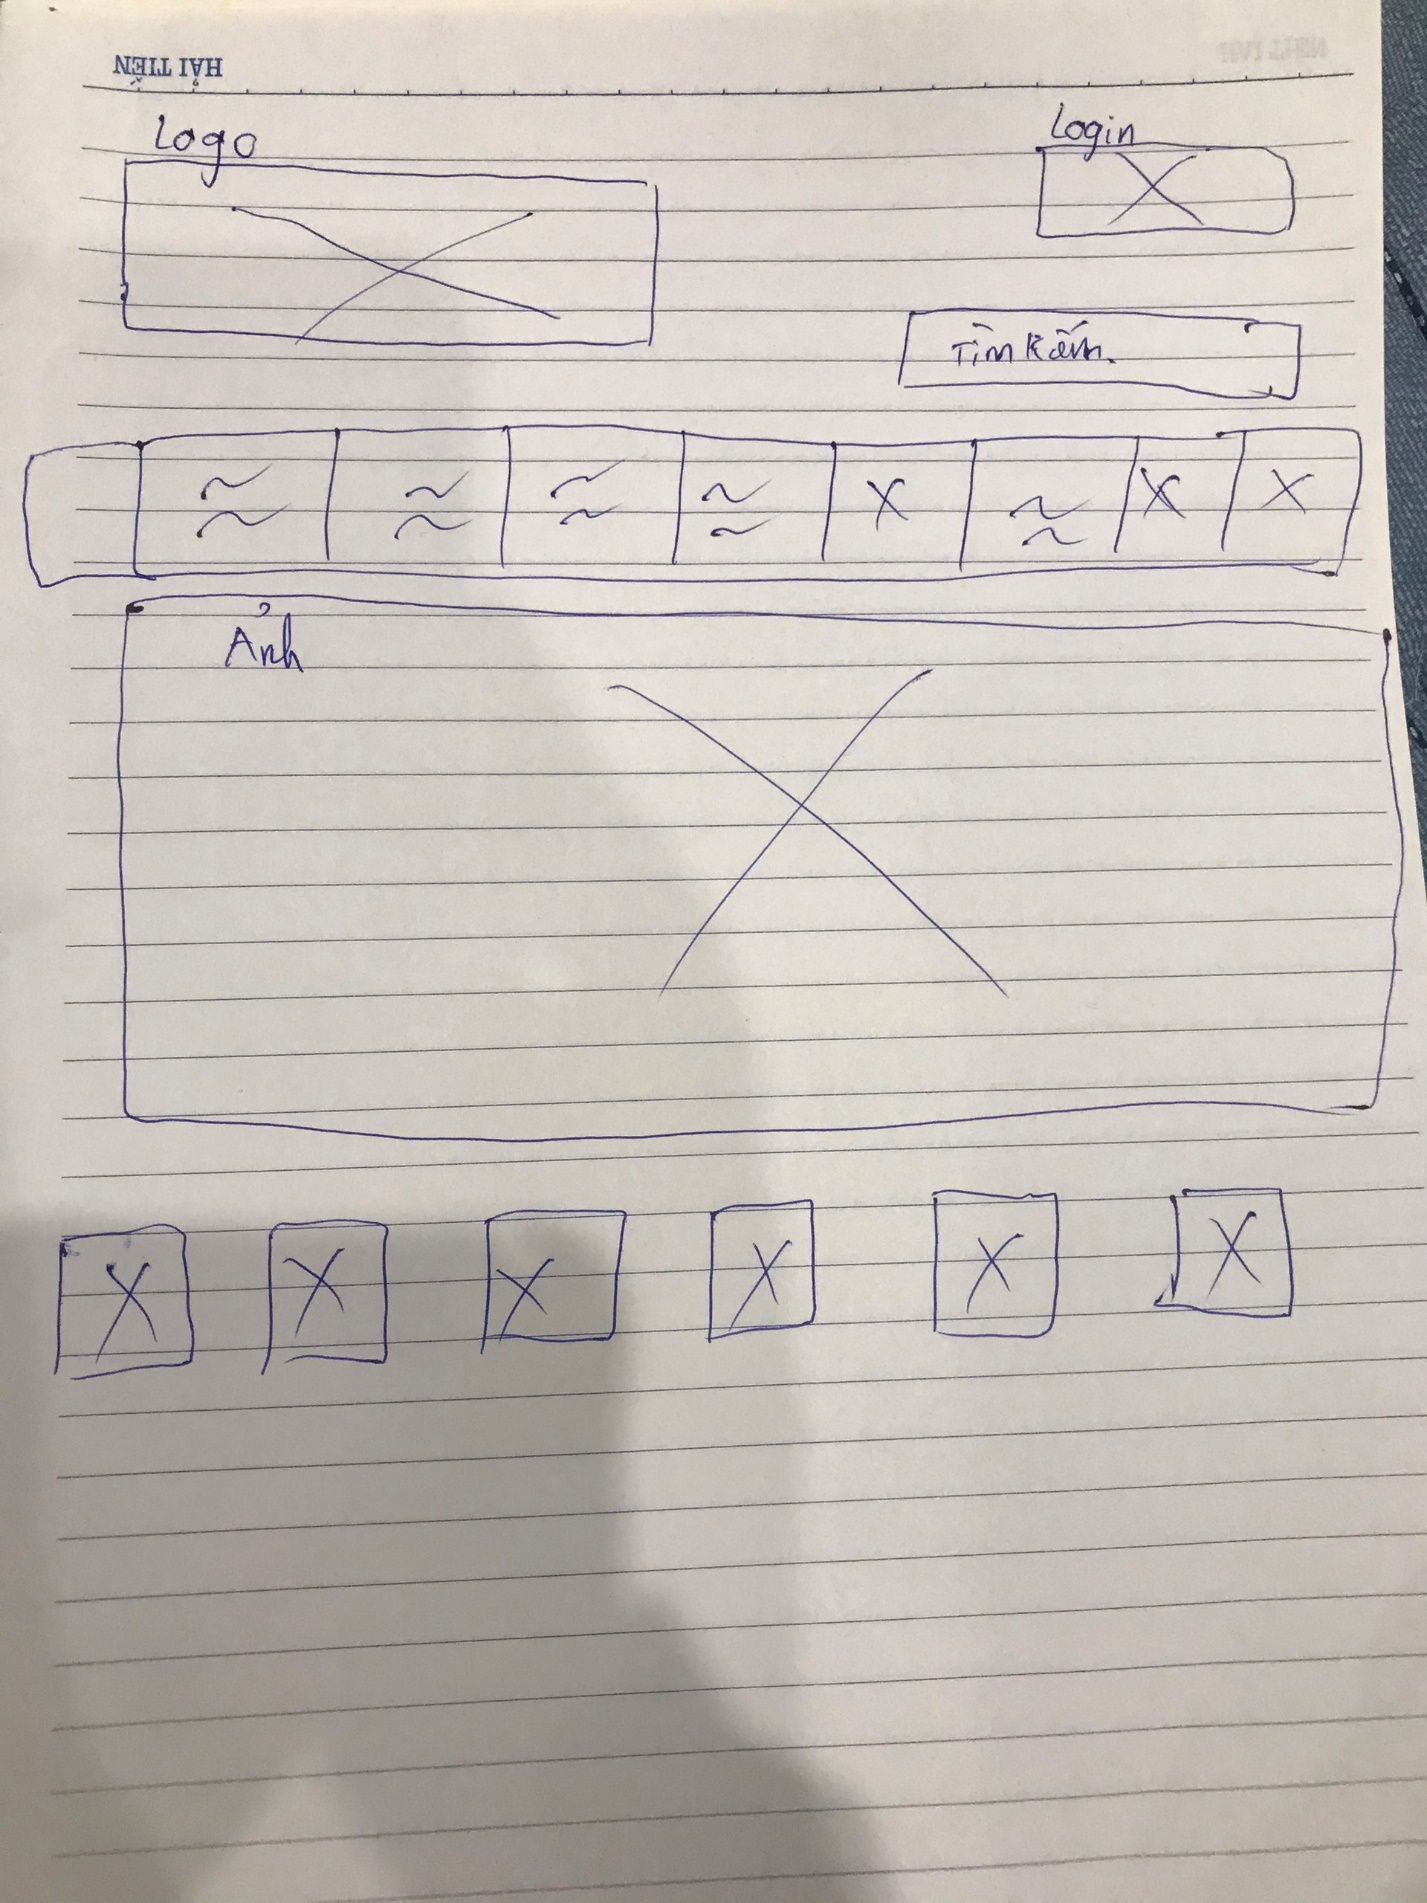 HẢI TIẾN
Logo
Login
Tìm kiếm.
Ảnh